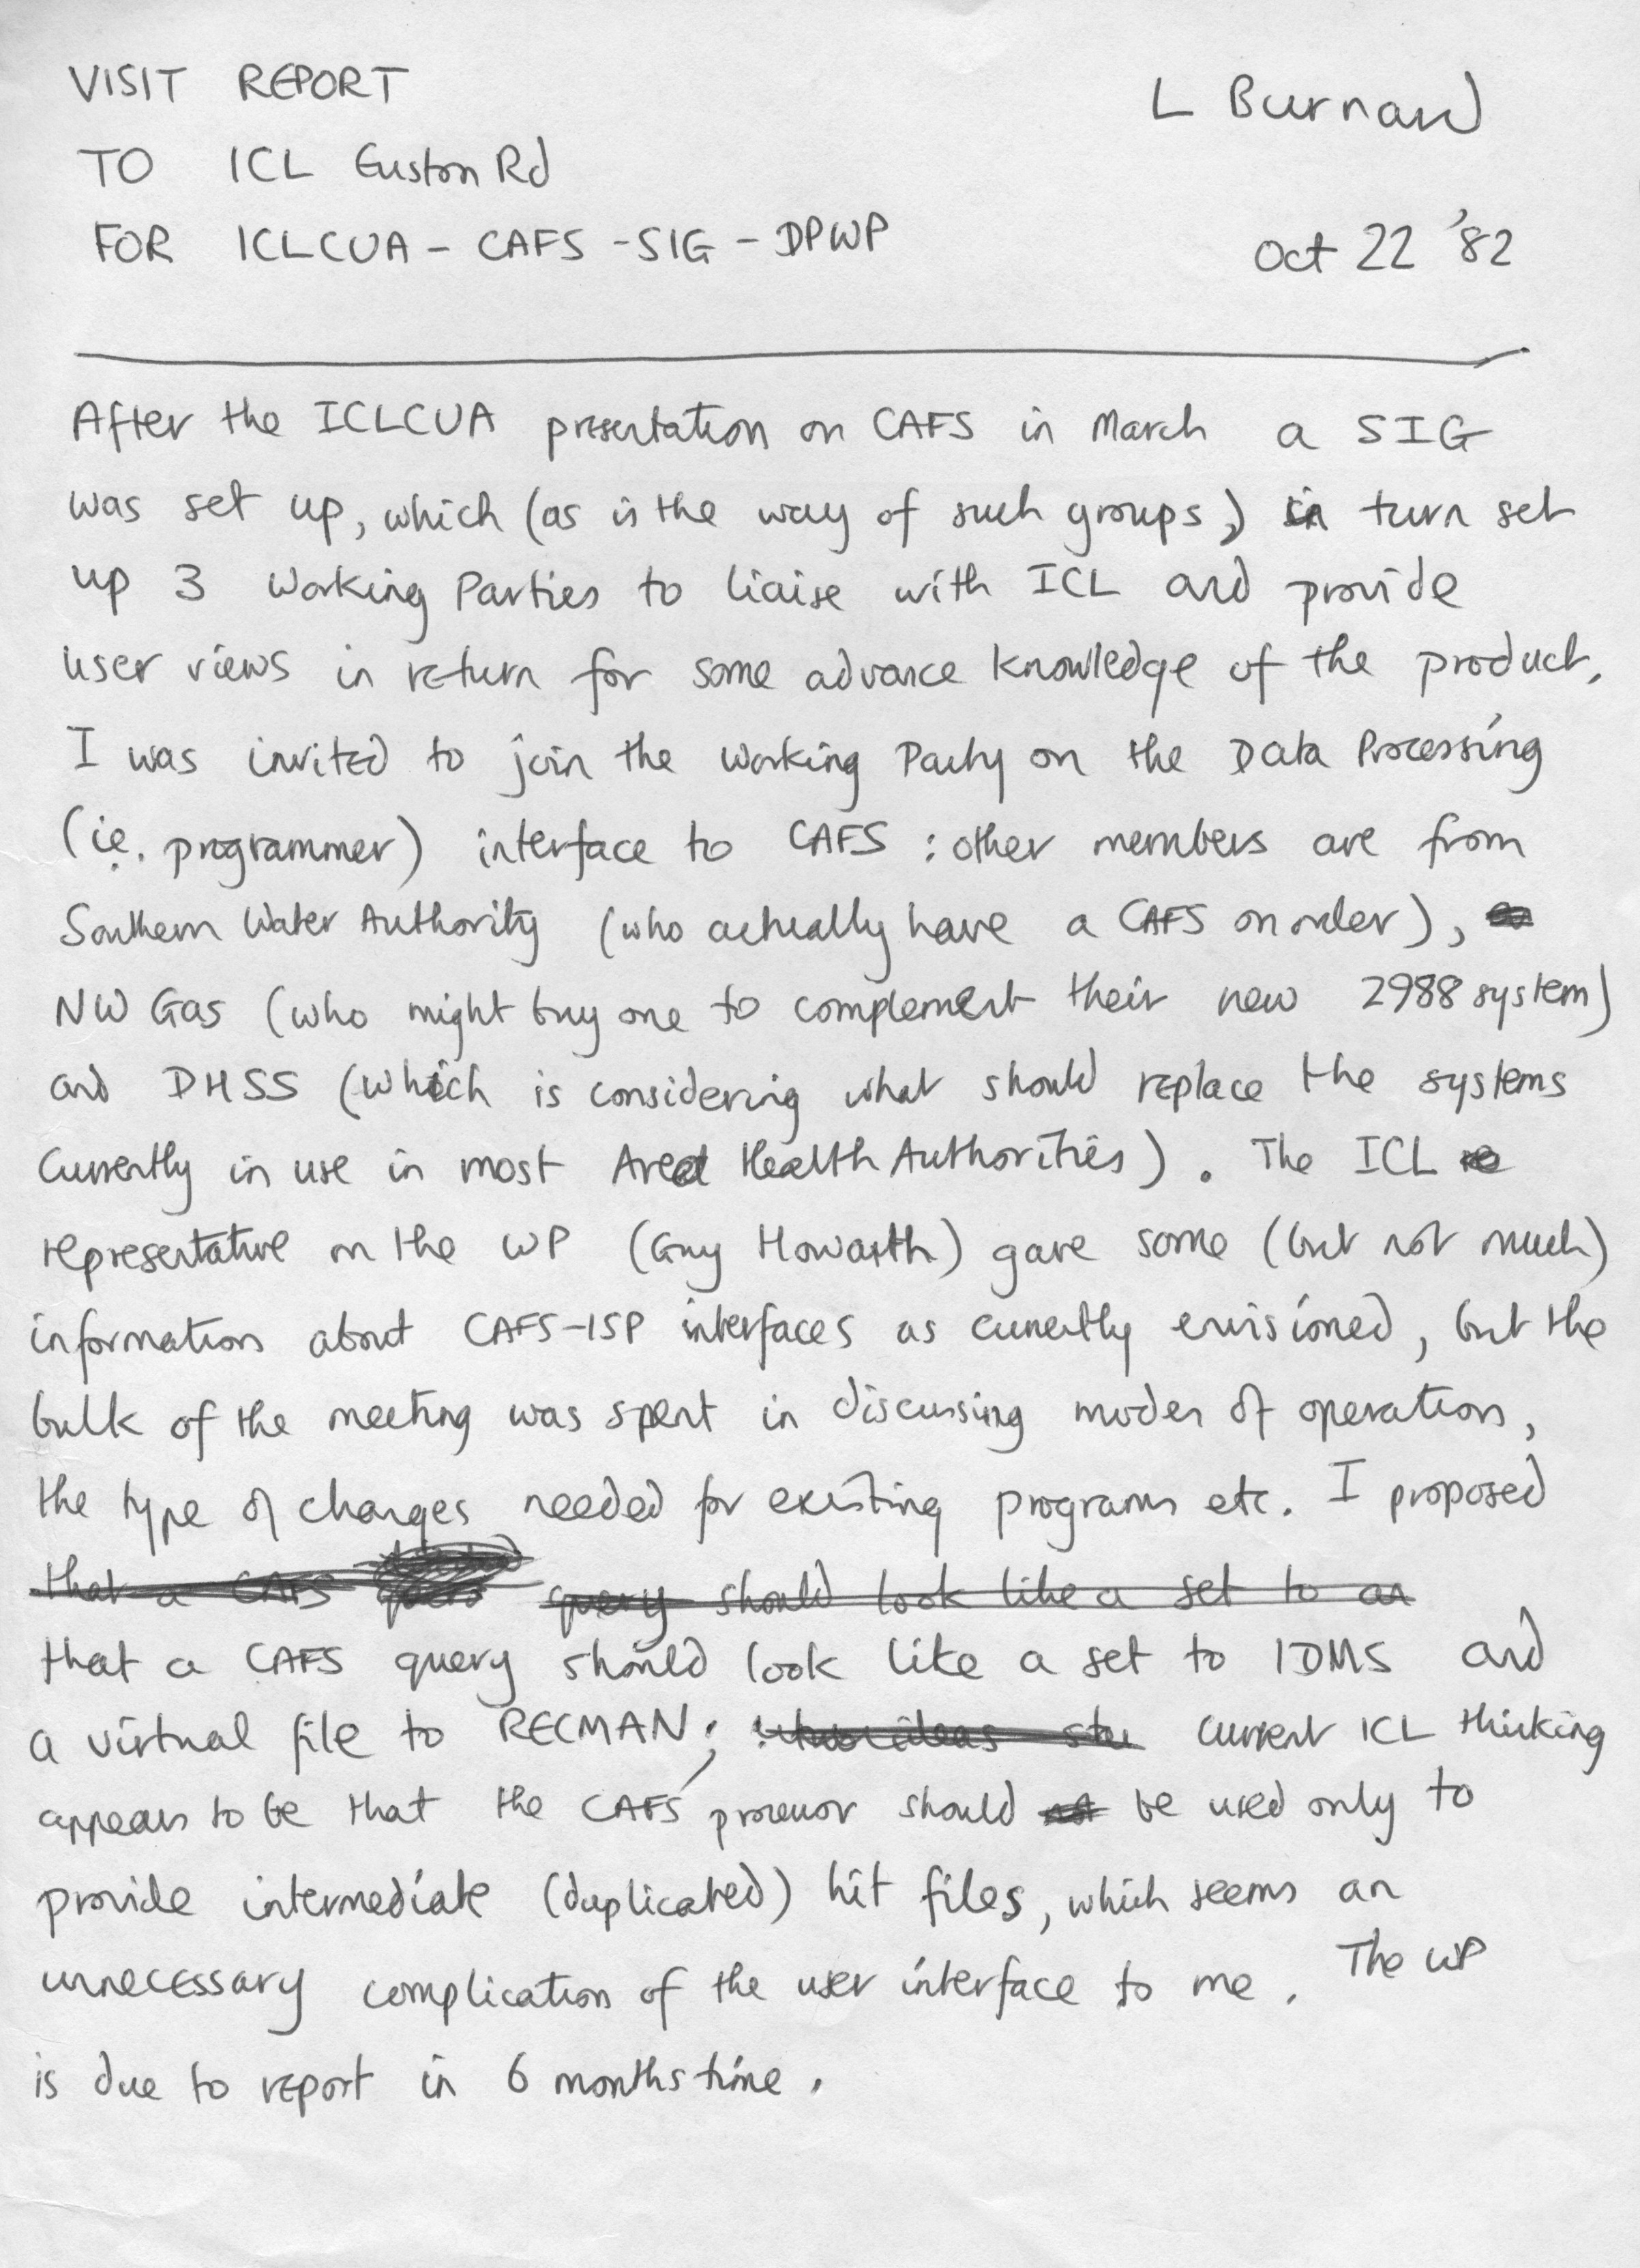 VISIT REPORT
L Burnard
TO ICL Euston Rd
FOR ICLCUA - CAFS - SIG - DPWP
Oct 22 '82
After the ICLCUA presentation on CAFS in March a SIG
was set up, which (as is the way of such groups,) in turn set
up 3 Working Parties to liaise with ICL and provide
user views in return for some advance knowledge of the product.
I was invited to join the Working Party on the Data Processing
(i.e. programmer) interface to CAFS : other members are from
Southern Water Authority (who actually have a CAFS on order),
NW Gas (who might buy one to complement their new 2988 system)
and DHSS (which is considering what should replace the systems
currently in use in most Area Health Authorities). The ICL
representative on the WP (Guy Howarth) gave some (but not much)
information about CAFS-ISP interfaces as currently envisioned, but the
bulk of the meeting was spent in discussing modes of operation,
the type of changes needed for existing programs etc. I proposed
that a CAFS query should look like a set to an
that a CAFS query should look like a set to IDMS and
a virtual file to RECMAN; current ICL thinking
appears to be that the CAFS processor should be used only to
provide intermediate (duplicated) hit files, which seems an
unnecessary complication of the user interface to me. The WP
is due to report in 6 months time.